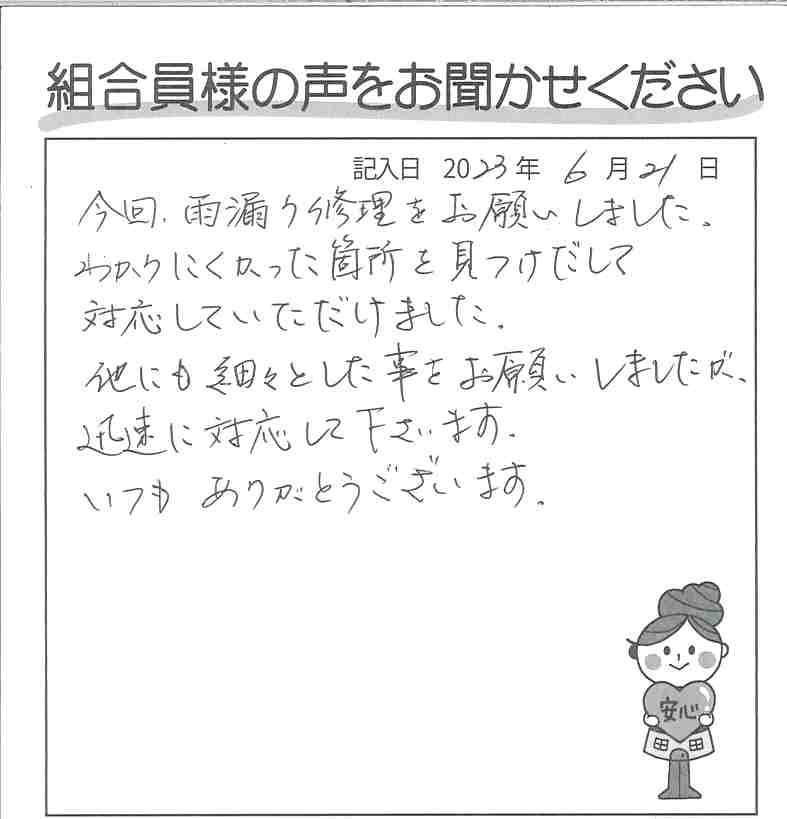 組合員様の声をお聞かせください
記入日 2023年 6月21日
今回、雨漏り修理をお願いしました。
わかりにくかった箇所を見つけだして
対応していただけました。
他にも細々とした事をお願いしましたが、
迅速に対応して下さいます。
いつもありがとうございます。
安心